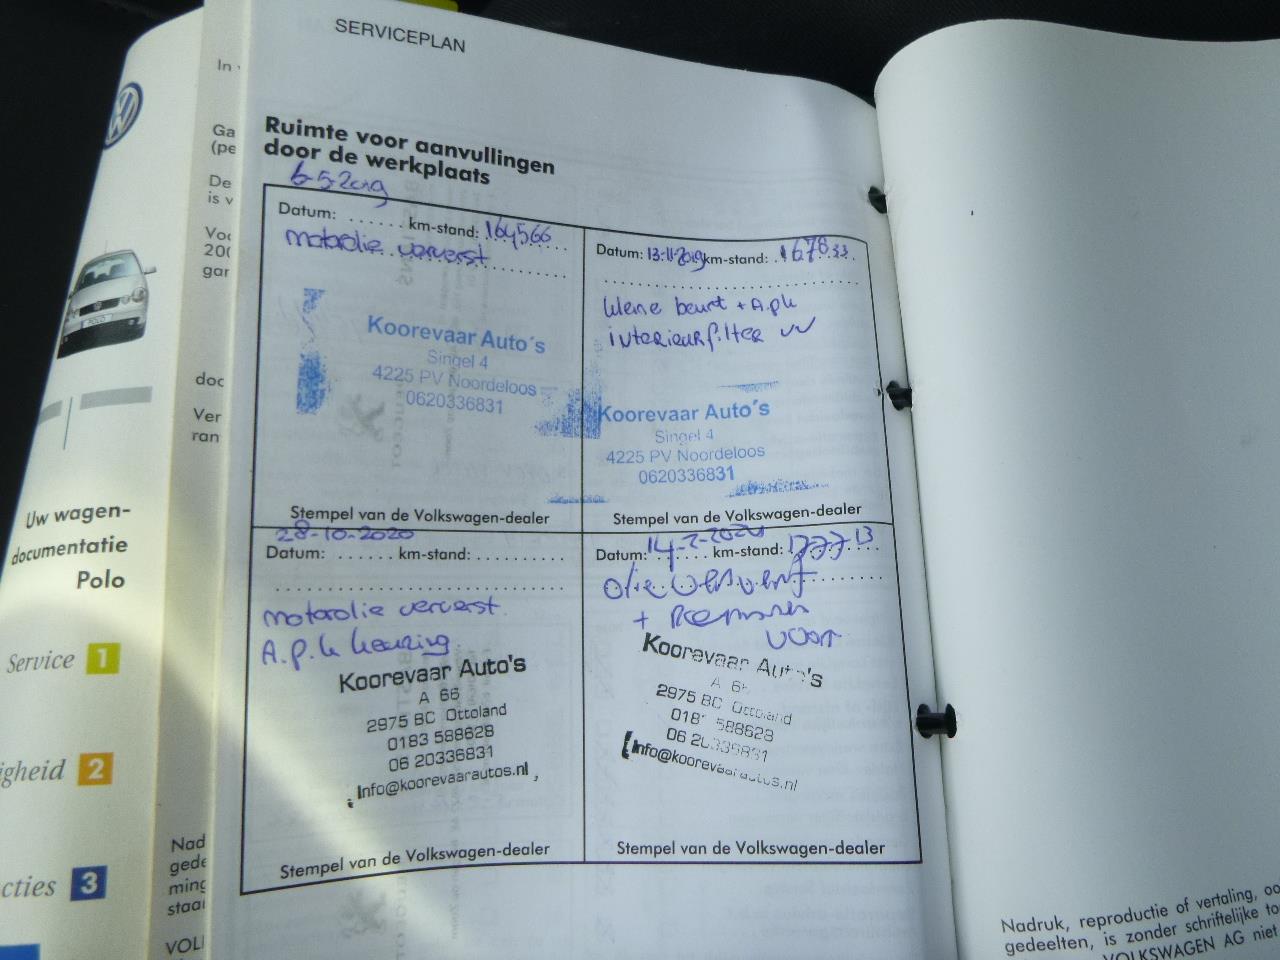 SERVICEPLAN
Ruimte voor aanvullingen
door de werkplaats
6-5-2019
Datum: ...... km-stand: 164566
motorolie ververst
Koorevaar Auto's
Singel 4
4225 PV Noordeloos
0620336831
Stempel van de Volkswagen-dealer
Datum: 13-11-2019 km-stand: 167833
kleine beurt + A.p.k
interieurfilter vv
Koorevaar Auto's
Singel 4
4225 PV Noordeloos
0620336831
Stempel van de Volkswagen-dealer
28-10-2020
Datum: ...... km-stand: .........
motorolie ververst
A.p.k keuring
Koorevaar Auto's
A 66
2975 BC Ottoland
0183 588628
06 20336831
Info@koorevaarautos.nl
Stempel van de Volkswagen-dealer
Datum: km-stand: 177713
olie ververst
+ Remmen
voor
Koorevaar Auto's
A 6
2975 BC Ottoland
018 588628
06 20336831
Info@koorevaarautos.nl
Stempel van de Volkswagen-dealer
In
Ga
(pe
De
is v
Voo
200
gar
doc
Ver
ran
Nad
gede
ming
staa
VOL
POLO
Uw wagen-
documentatie
Polo
Service 1
igheid 2
cties 3
Nadruk, reproductie of vertaling, oo
gedeelten, is zonder schriftelijke to
VOLKSWAGEN AG niet